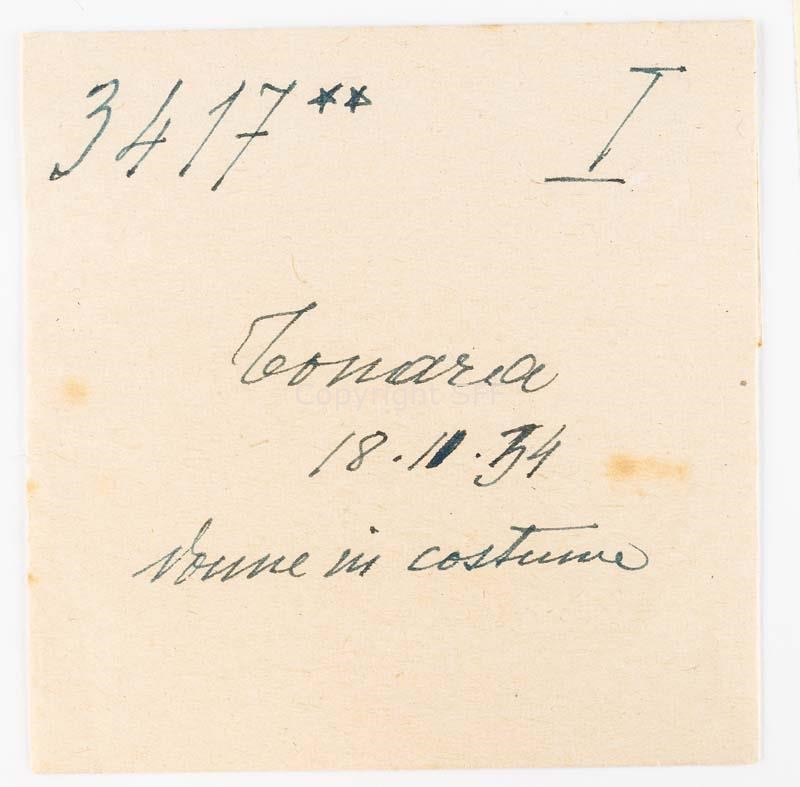 3417** I
Tonara
18.11.34
donne in costume
Copyright SFF